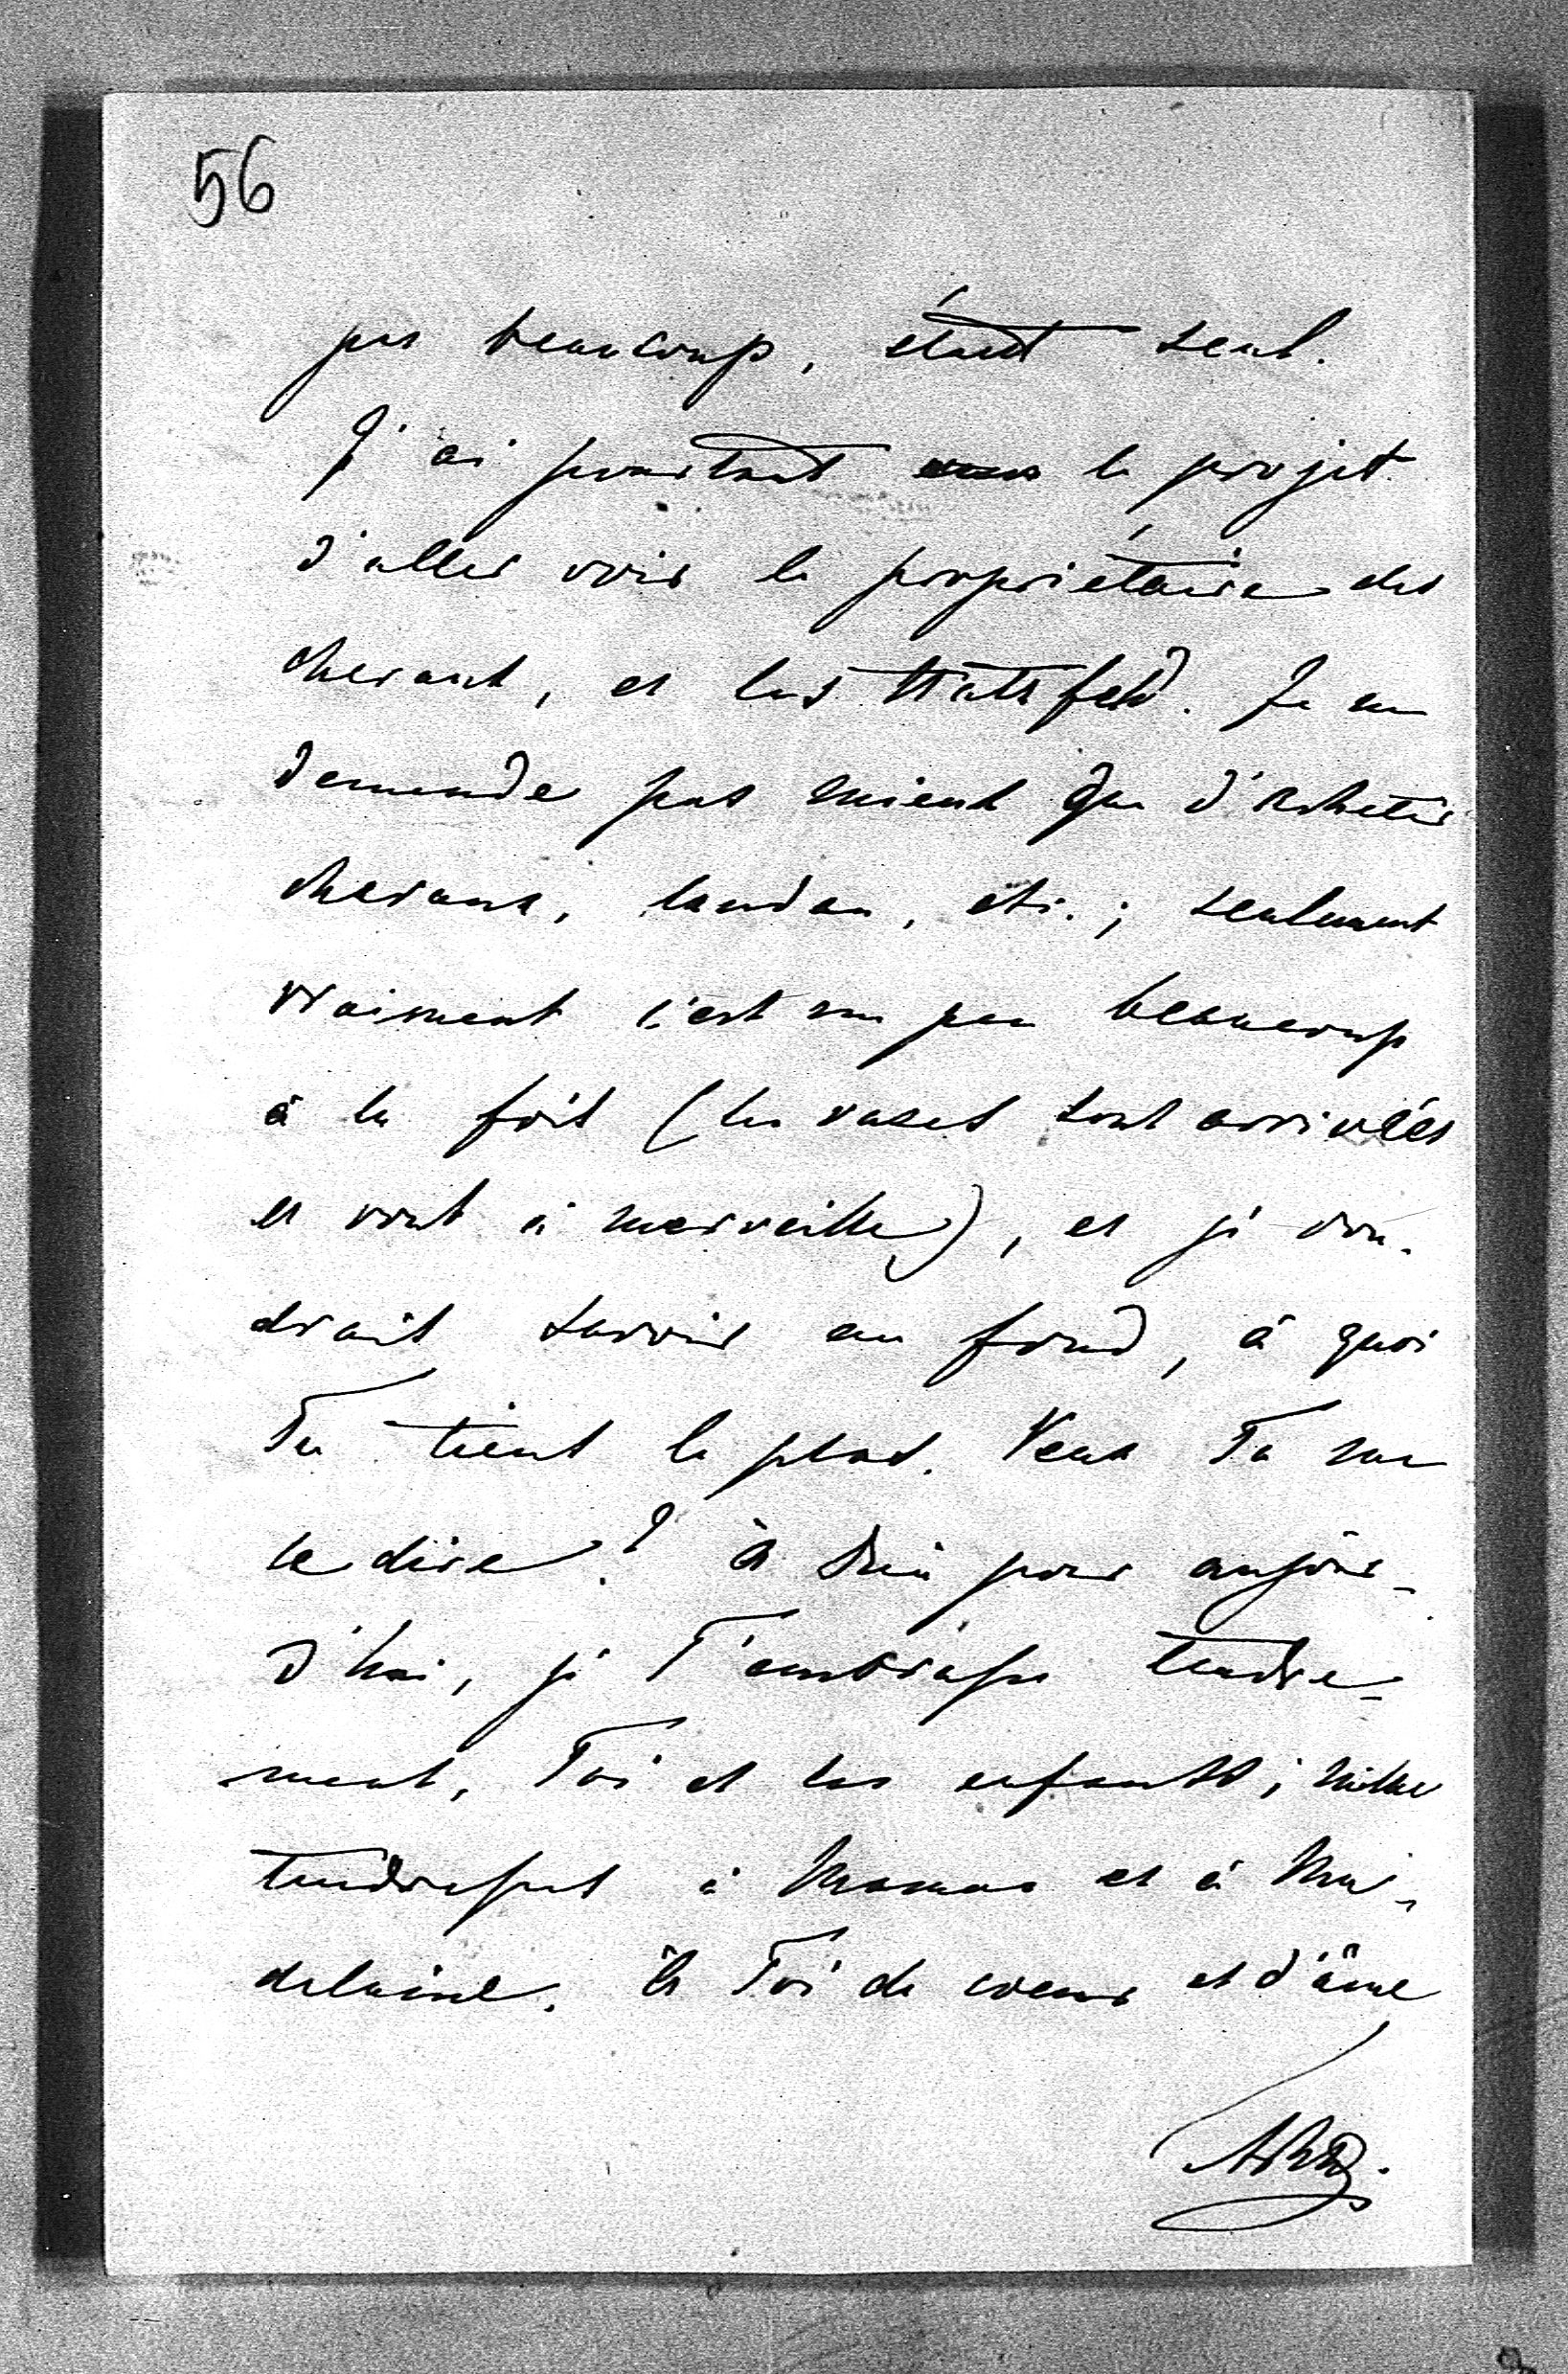 56
pas beaucoup, étant seul.
J'ai pourtant le projet
d'aller voir le propriétaire des
chevaux, et les Hatzfeld. Je ne
demande pas mieux que d'acheter
chevaux, landau, etc.; seulement
vraiment c'est un peu beaucoup
à la fois (les vases sont arrivées
et vont à merveille), et je vou-
drais savoir au fond, à quoi
Tu tiens le plus. Veux Tu me
le dire? à Dieu pour aujour-
d'hui, je T'embrasse tendre-
ment, Toi et les enfants; mille
tendresses à Maman et à Ma-
deleine. à Toi de coeur et d'âme